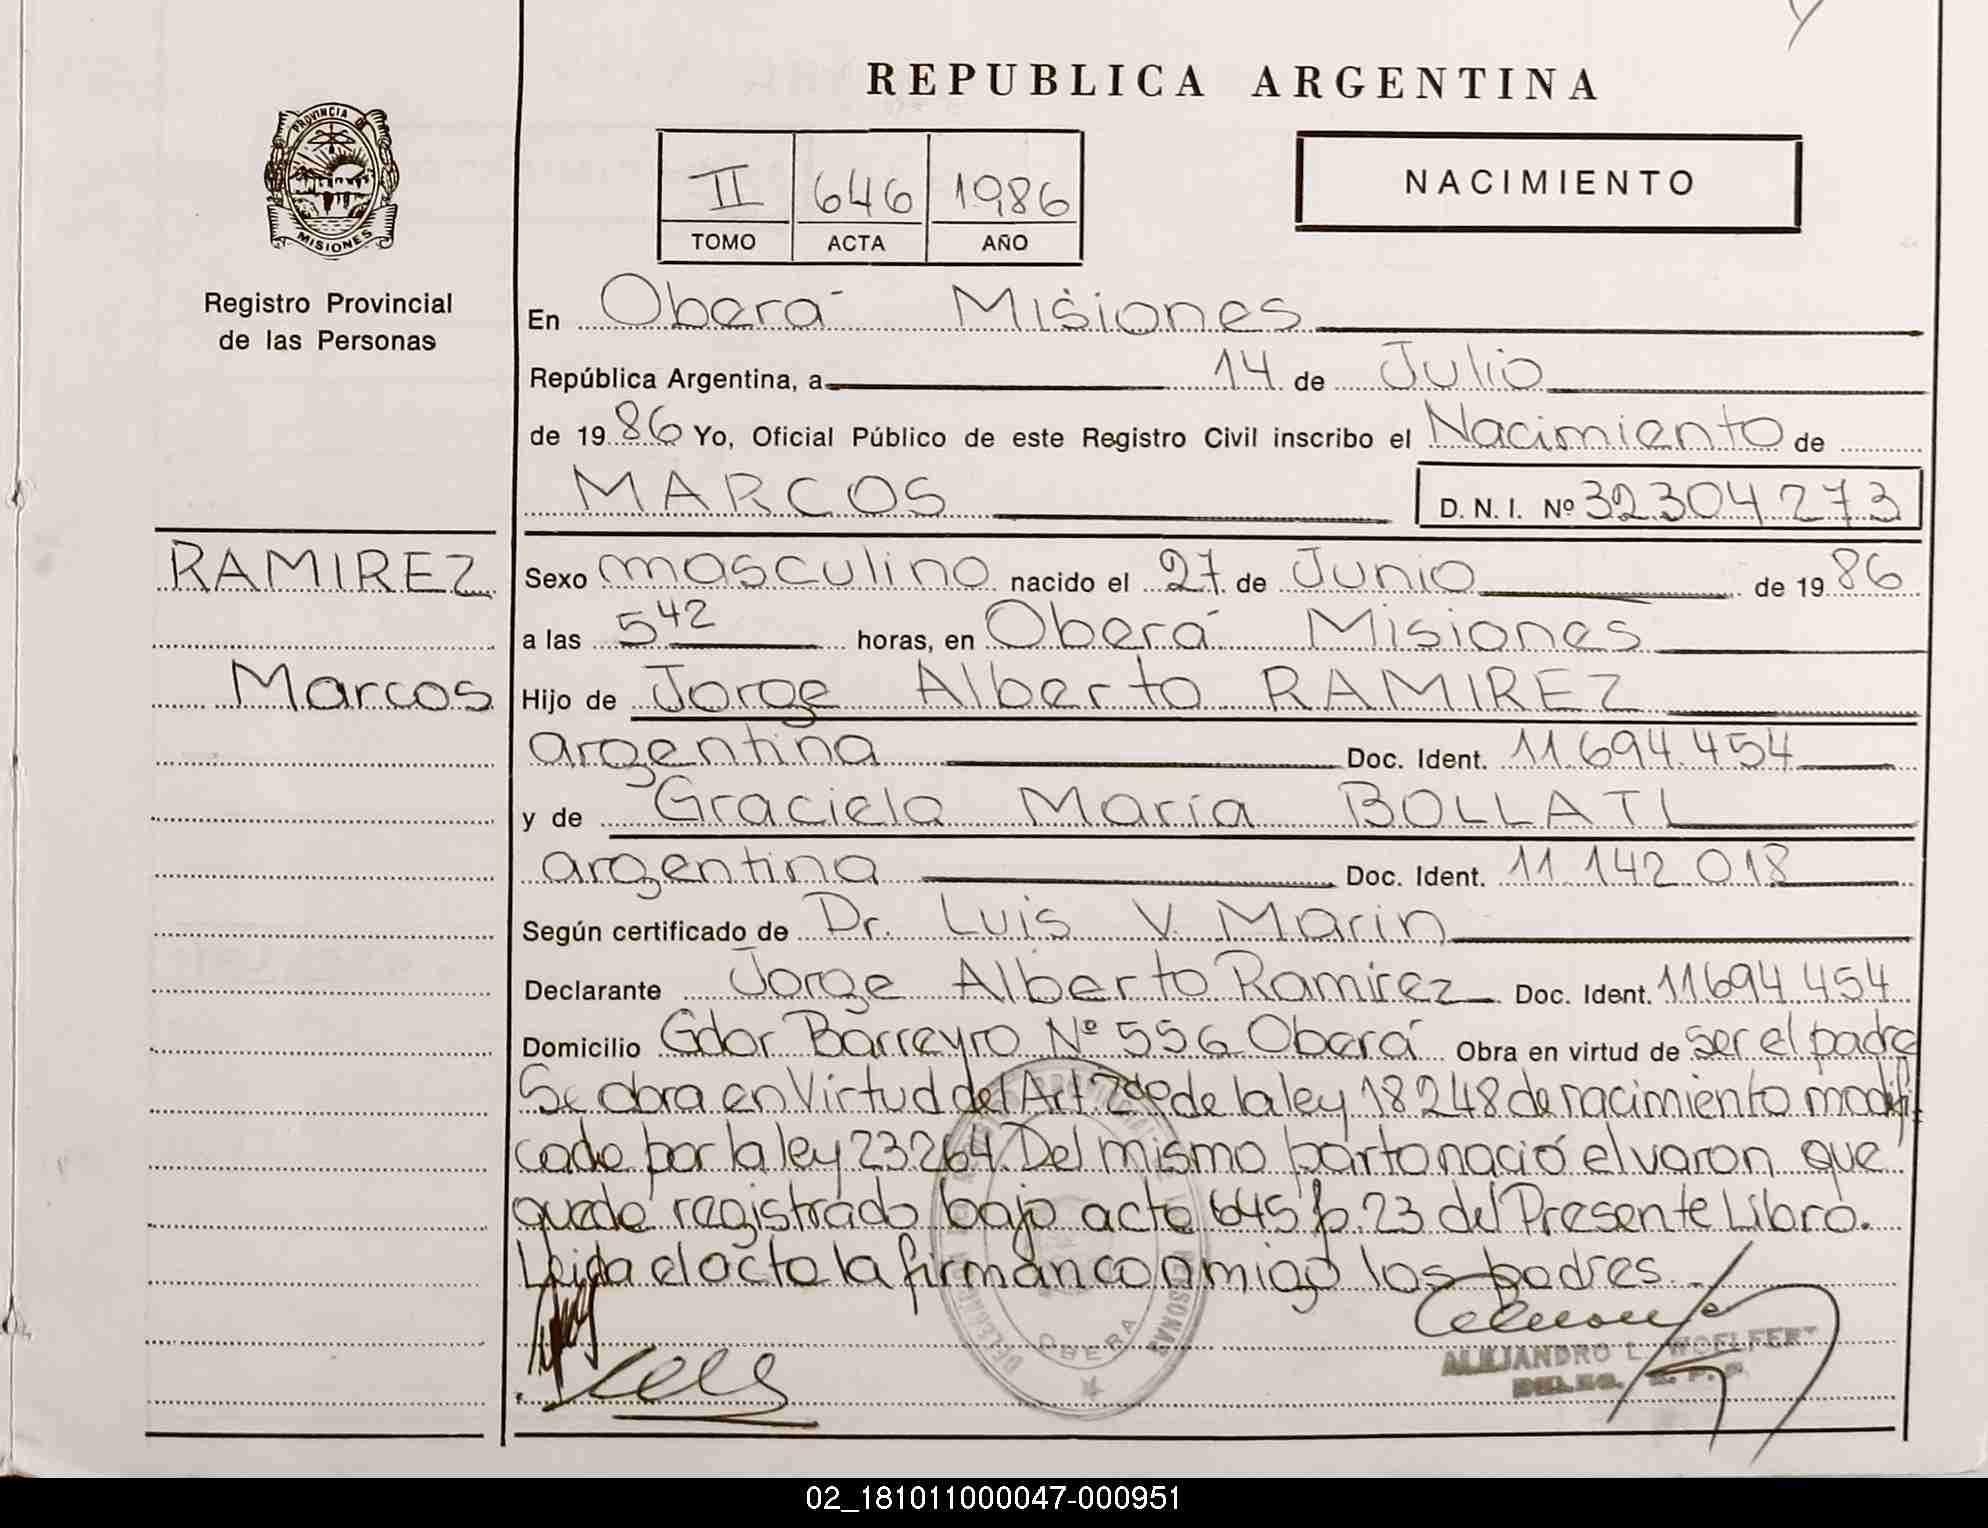 REPUBLICA ARGENTINA
PROVINCIA DE
MISIONES
II 646 1986
TOMO ACTA AÑO
NACIMIENTO
Registro Provincial
de las Personas
En Oberá Misiones
República Argentina, a 14 de Julio
de 1986 Yo, Oficial Público de este Registro Civil inscribo el Nacimiento de
MARCOS D. N. I. Nº 32304273
RAMIREZ
Marcos
Sexo masculino nacido el 27 de Junio de 1986
a las 5 42 horas, en Oberá Misiones
Hijo de Jorge Alberto RAMIREZ
argentina Doc. Ident. 11.694.454
y de Graciela María BOLLATI
argentina Doc. Ident. 11.142.018
Según certificado de Dr. Luis V. Marin
Declarante Jorge Alberto Ramírez Doc. Ident. 11694454
Domicilio Gdor Barreyro Nº 556 Oberá Obra en virtud de ser el padre
Se obra en Virtud del Art. 2do de la ley 18248 de nacimiento modifi
cado por la ley 23264. Del mismo parto nació el varon que
quedó registrado bajo acta 645 f. 23 del Presente Libro.
Leida el acta la firman conmigo los padres.
OBERA
ALEJANDRO L. WOELFERT
DELEG. R. P. P.
02_181011000047-000951